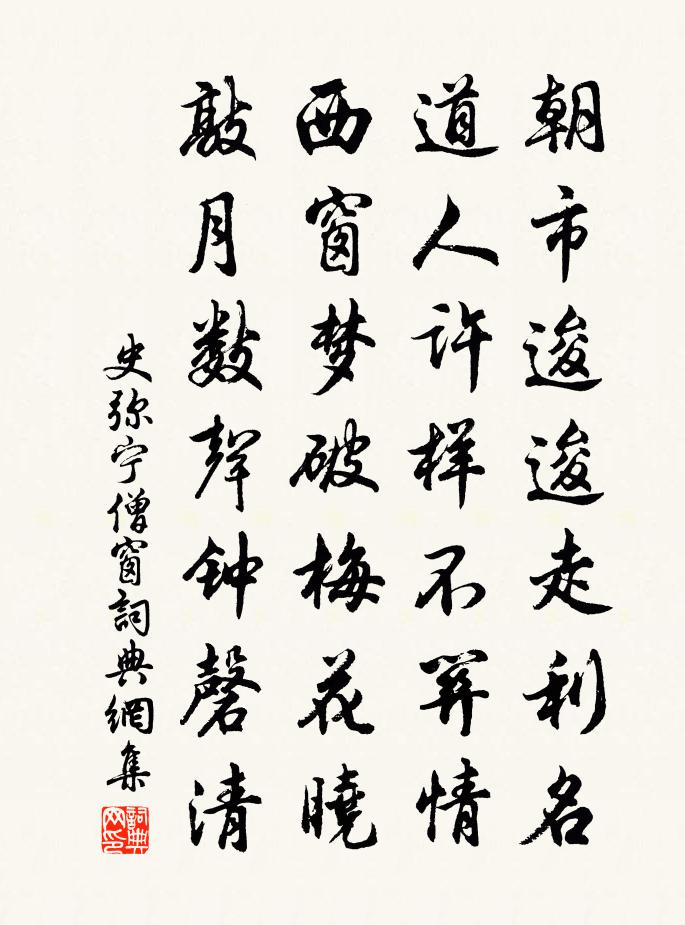 朝市逡逡走利名
道人许样不關情
西窗梦破梅花曉
敲月数聲钟磬清
史弥宁僧窗詞典網集
詞典网印